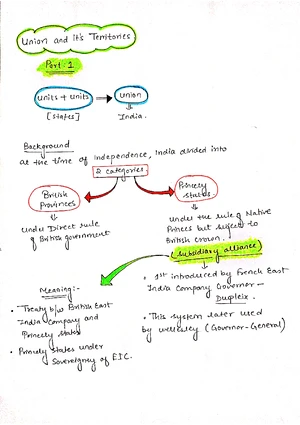 Union and It's Territories
Part:1
units + units → union
[states] India.
Background
at the time of independence, India divided into
2 categories
British
Provinces
under Direct rule
of British government
Princely
states.
under the rule of Native
Princes but subject to
British crown.
subsidiary alliance
Meaning:-
• Treaty b/w British East
India Company and
Princely states
• Princely states under
Sovereignty of E.I.C.
• 1st introduced by French East
India Company Governer -
Dupleix.
• This system later used
by wellesley (Governor-General)